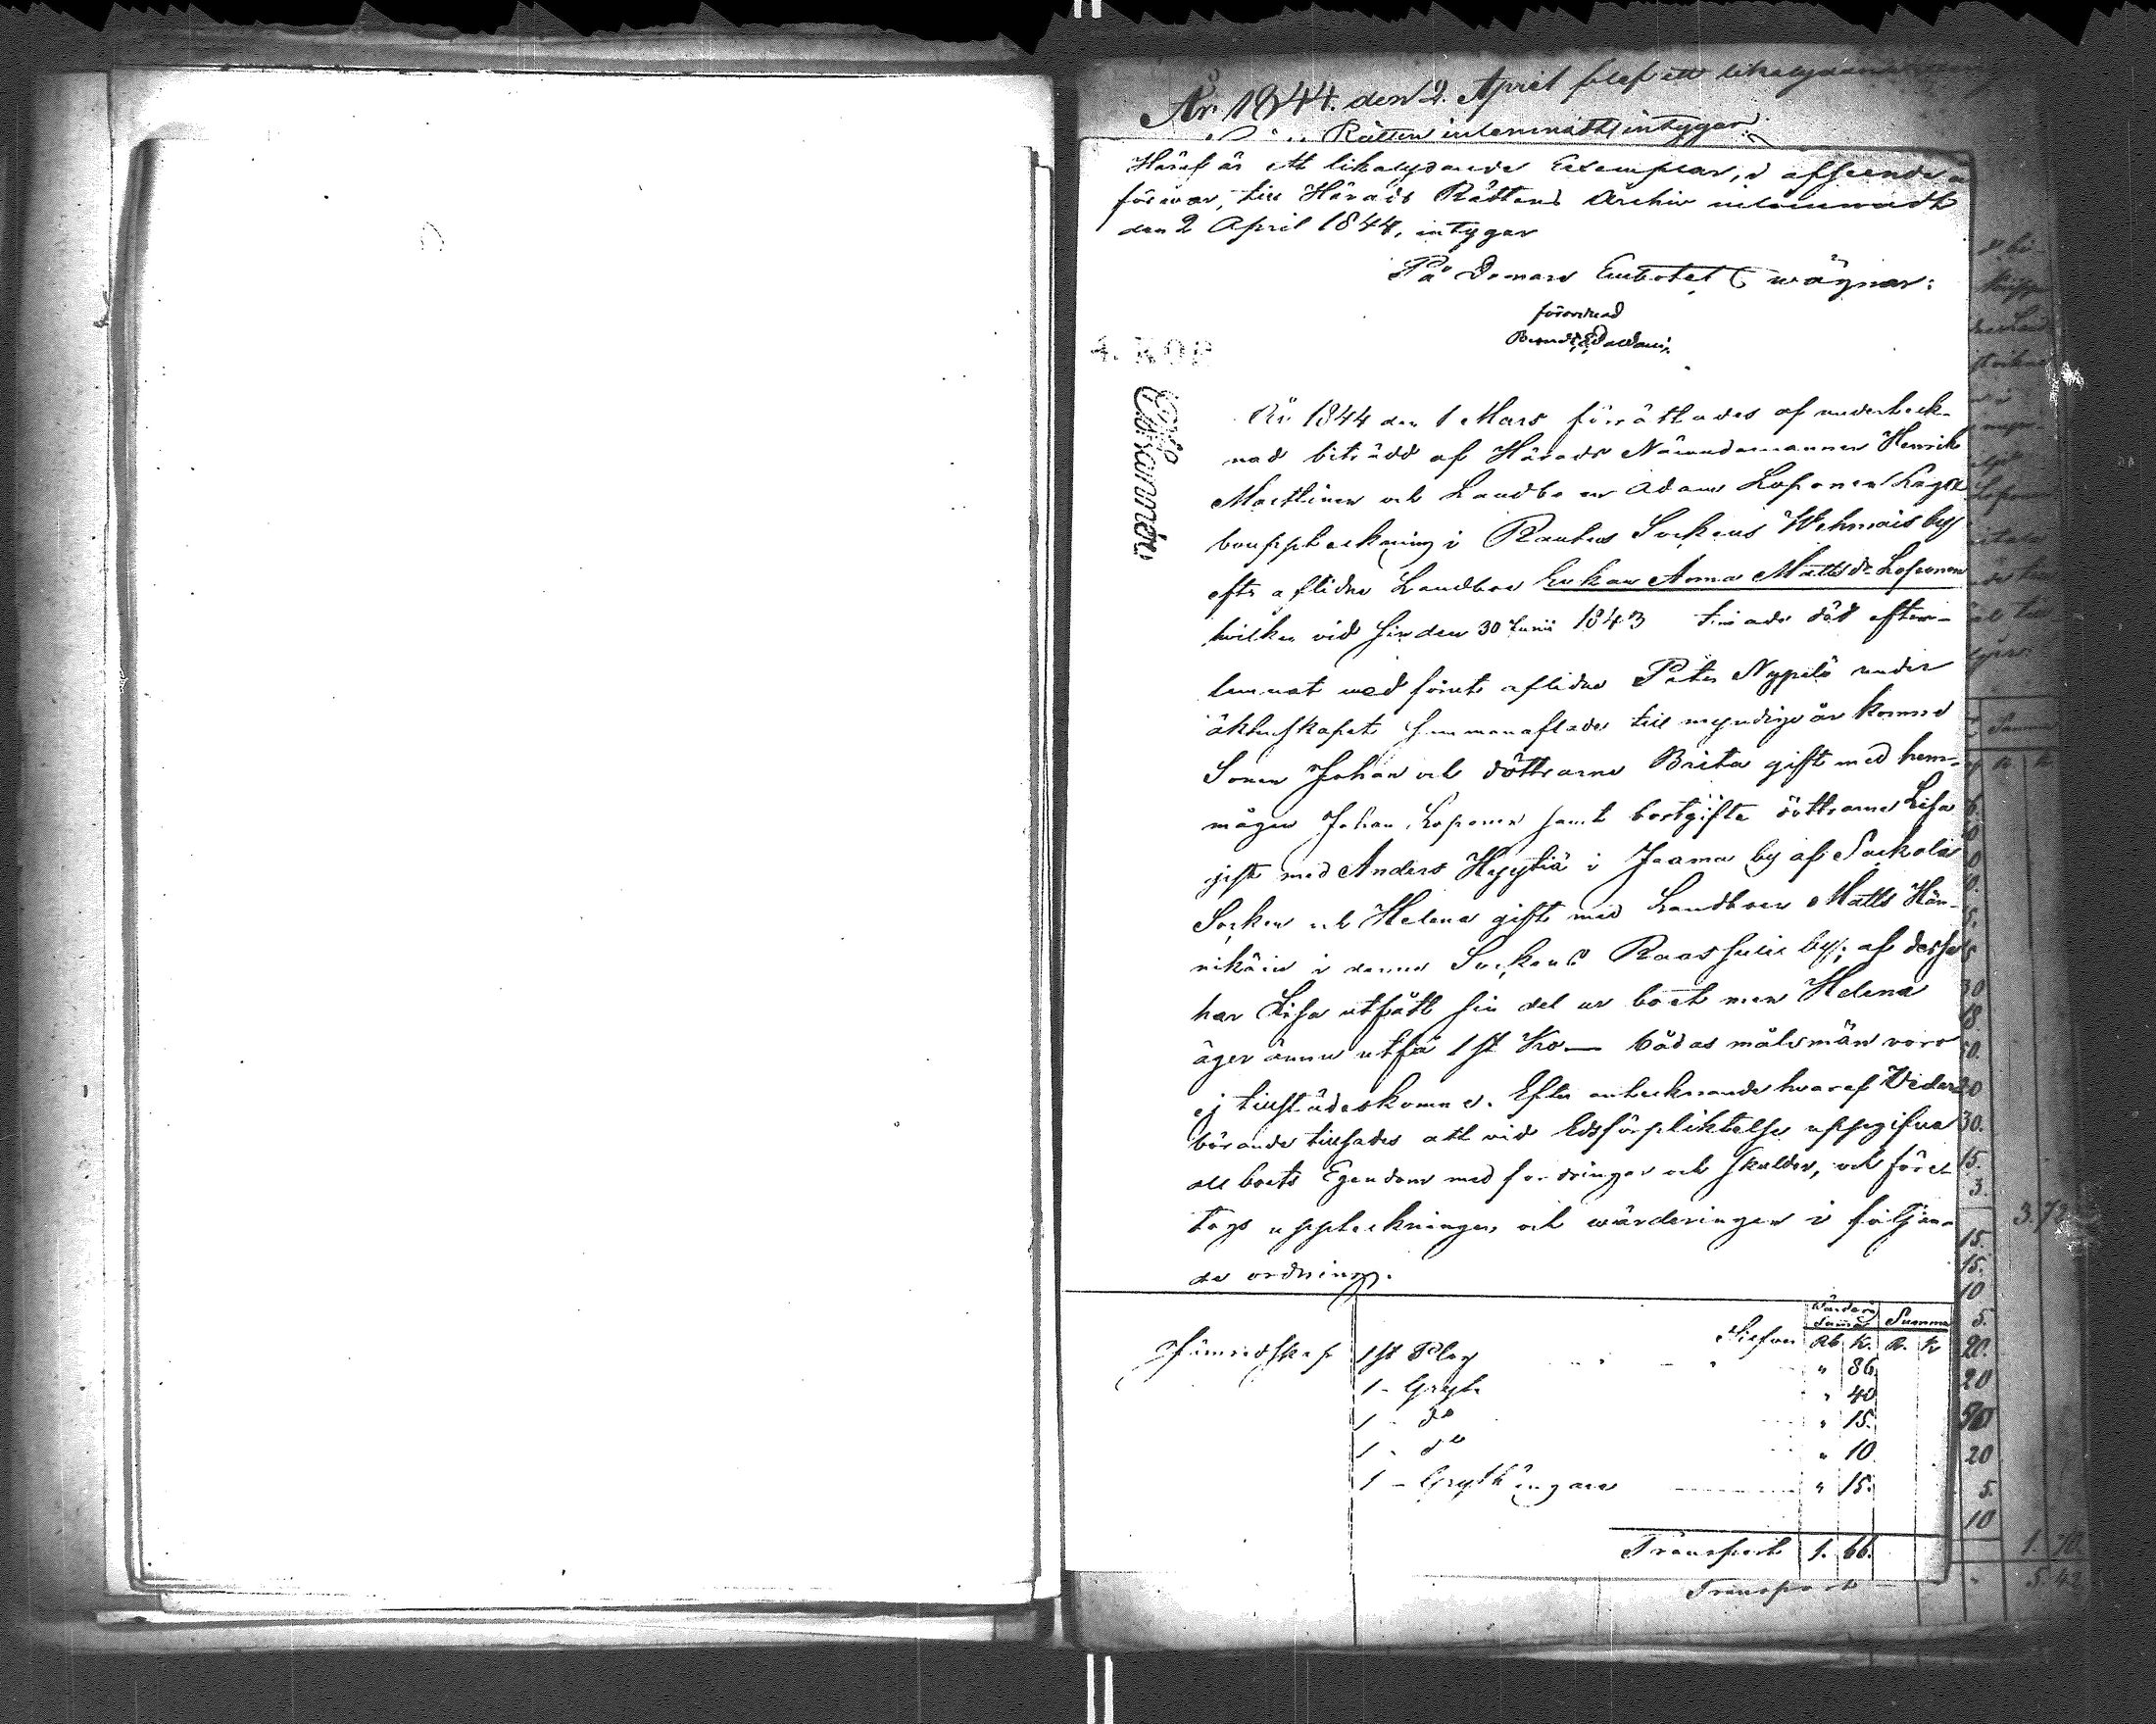 År 1844. den 2. April blef ett likalydande
Rätten inlemnadt, intygar.
Häraf är ett likalydande Exemplar, i afseende å
förvar, till Härads Rättens Archiv inlemnadt
den 2 April 1844, intygar
På Domare Embetets wägnar:
förordnad
4. KOP
Charannda
År 1844 den 1 Mars förrättades af underteck-
nad biträdd af Härads Nämndemannen Henrik
Marttinen och Landbo en Adam Loponen Laga
bouppteckning i Rautus Sockens Wehmais by
eftr aflidne Landboe Enkan Anna Mattsdr Loponen
hvilken vid sin den 30 Junii 1843 timade död efter-
lemnat med förut aflidne Petter Nyppelö under
äktenskapet sammanaflade till myndige år komne
Sonen Johan och döttrarne Brita gift med hem-
mågen Johan Loponen samt bortgifta döttrarne Lisa
gift med Anders Hyytiä i Jaama by af Sackola
Socken och Helena gift med Landboen Matts Hän-
nikäin i denne Sockens Raassulie by; af desse
har Lisa utfått sin del ur boet men Helena
äger ännu utfå 1 st Ko — bådas målsmän voro
ej tillstädeskomne. Efter antecknande hvaraf Weder-
börande tillsades att vid Edsförpliktelse uppgifva
all boets Egendom med fordringar och skulder, och före-
togs uppteckningen och wärderingen i följan-
de ordning.
Wärderings Summa Summa
Silfver Rb K. R. K
Jernredskap 1 st Plog " 86
1 - Gryta " 40
1 - do " 15.
1 - do " 10
1 - Grythängare " 15.
Transport 1. 66.
Transport 5.42